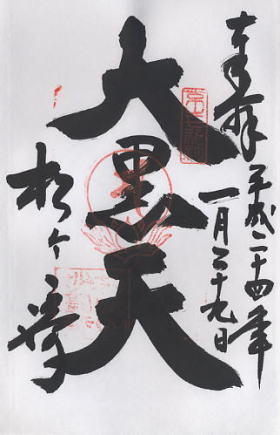 奉拝 平成二十四年
一月二十九日
大黒天
松ヶ崎